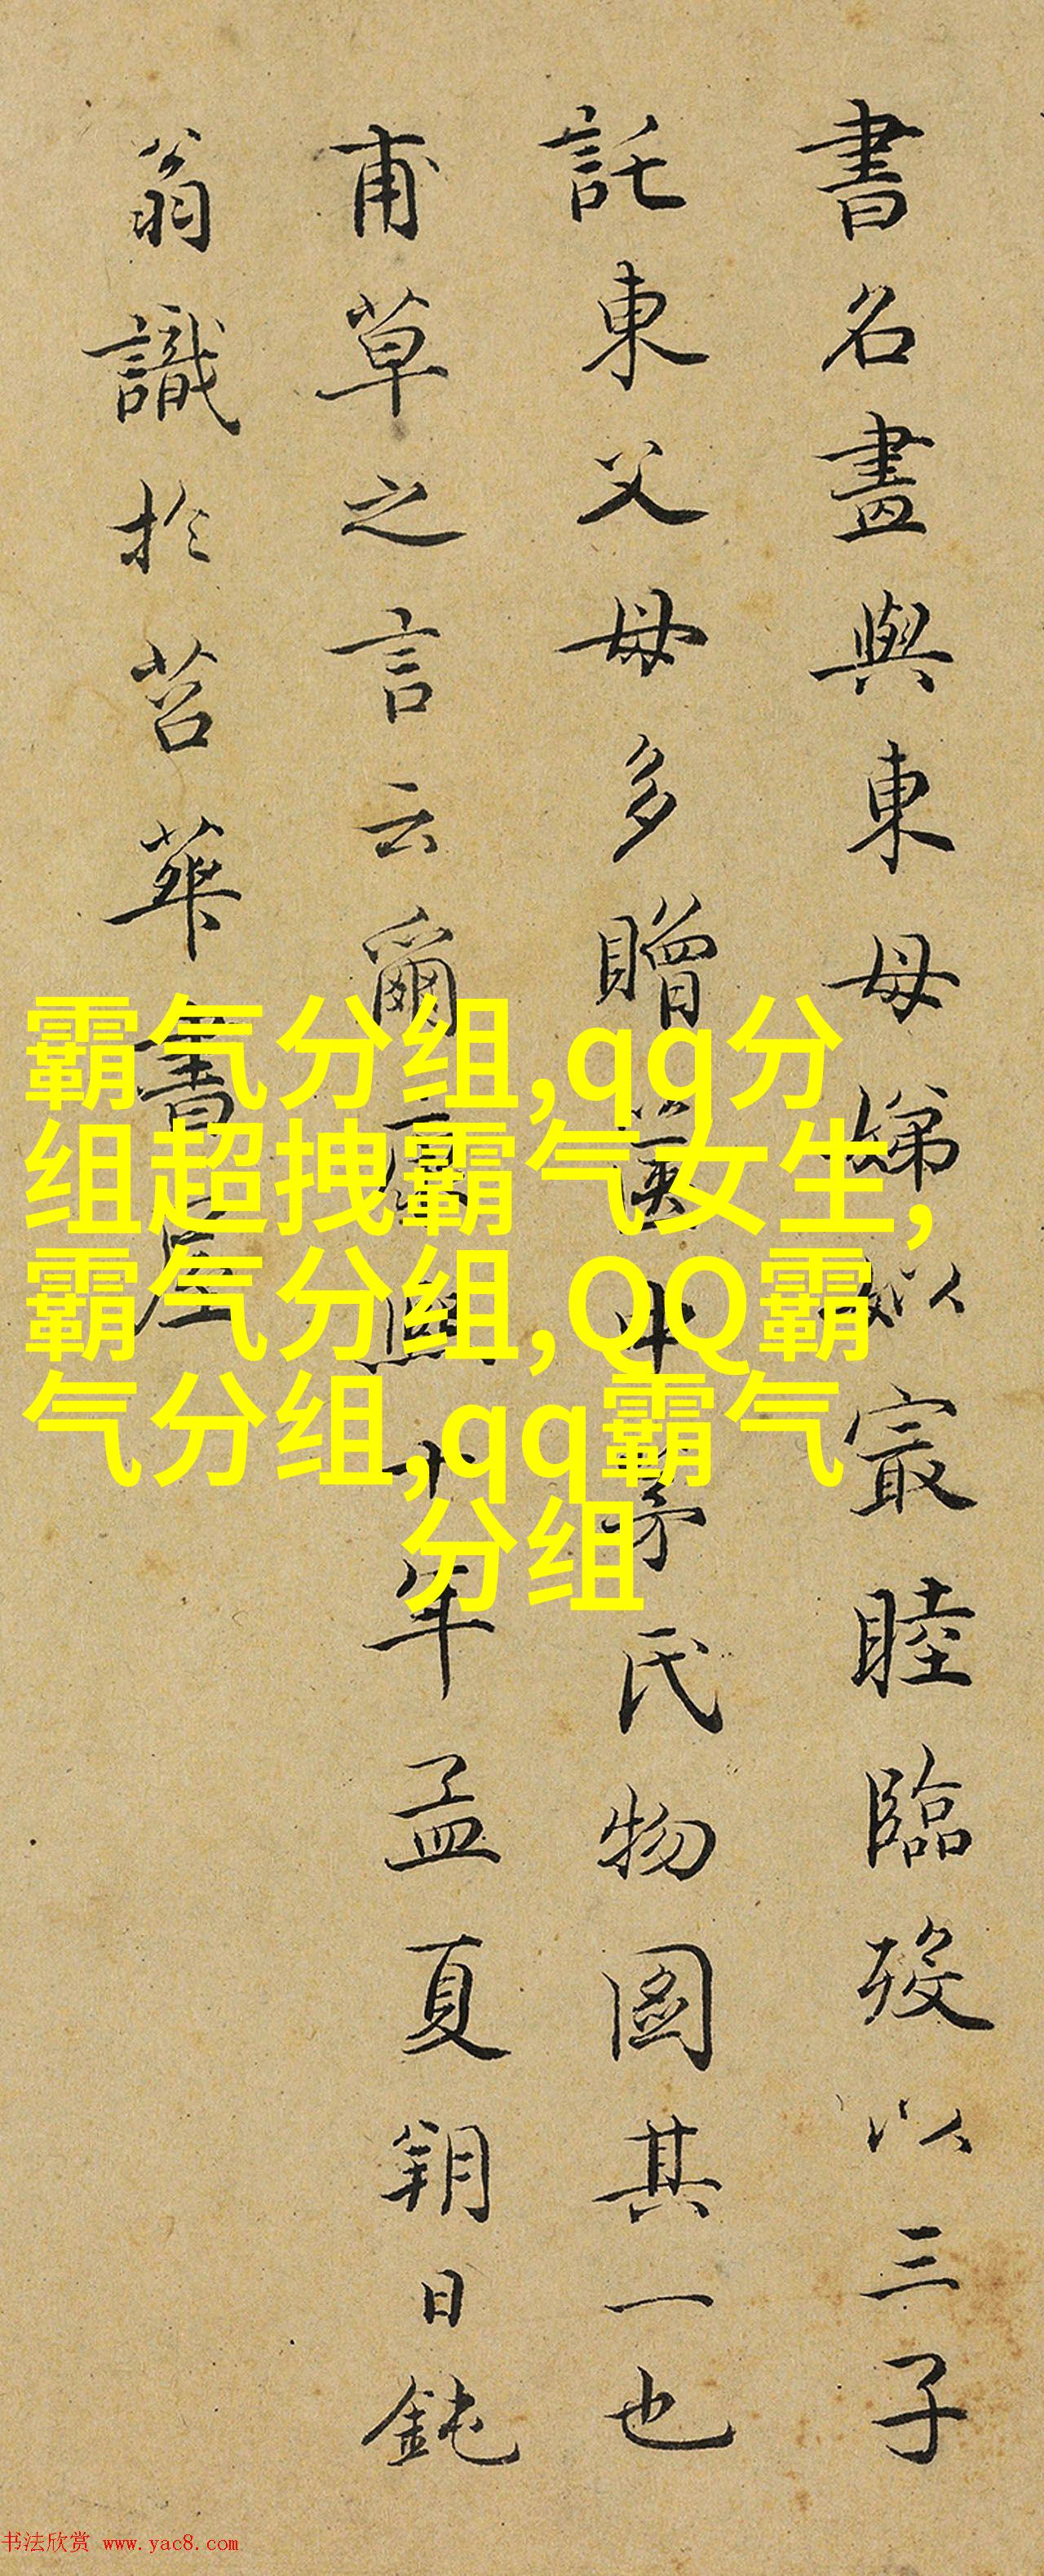 書名畫與東母娣姒最睦臨歿以三子
託東父母多贈氏物圖其一也
甫草之言云爾十年孟夏朔日鈍
翁識於苕華書屋
霸气分组,qq分
组超拽霸气女生,
霸气分组,QQ霸
气分组,qq霸气
分组
书法欣赏 www.yac8.com